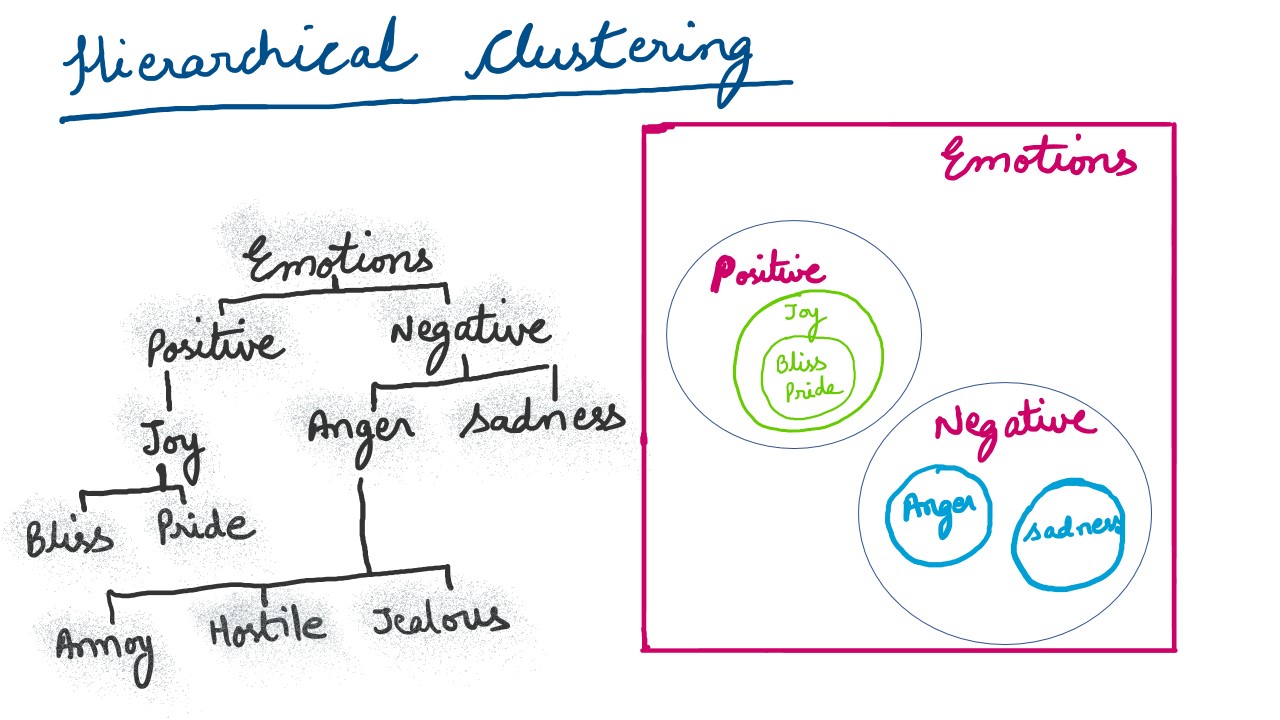 Hierarchical Clustering
Emotions
Positive Negative
Joy Anger sadness
Bliss Pride
Annoy Hostile Jealous
Emotions
Positive
Joy
Bliss
Pride
Negative
Anger sadness